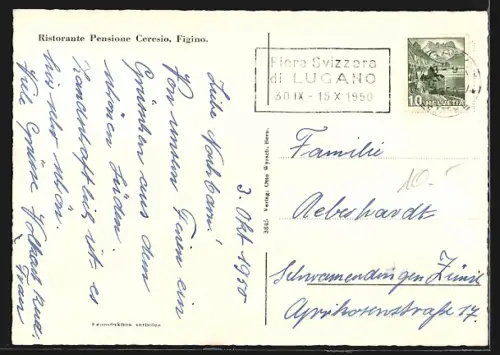 Ristorante Pensione Ceresio, Figino.
Fiera Svizzera
di LUGANO
30 IX - 15 X 1950
10 HELVETIA
3. Okt 1950
Liebe Nachbarn!
Von unsern Ferien ein
Grüsschen aus dem
schönen Süden.
Landschaftlich ist es
hier sehr schön.
Viele Grüsse
Frau
3845 Verlag: Otto Wyrsch, Bern.
Familie
Rebshardt
10.-
Schwamendingen Zürich
Aprikosenstraße 17.